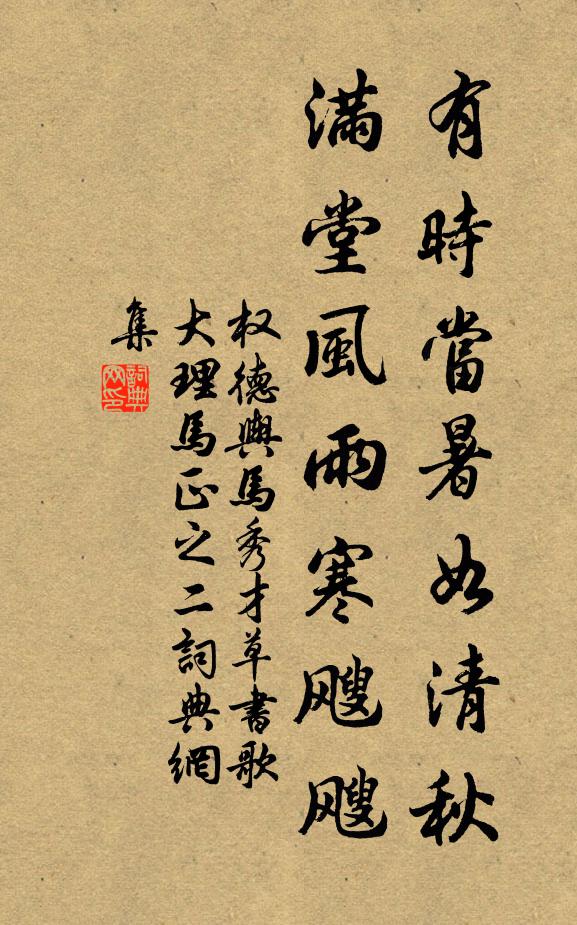 有時當暑如清秋
滿堂風雨寒颼颼
权德輿馬秀才草書歌
大理馬正之二詞典網
集
詞典网印